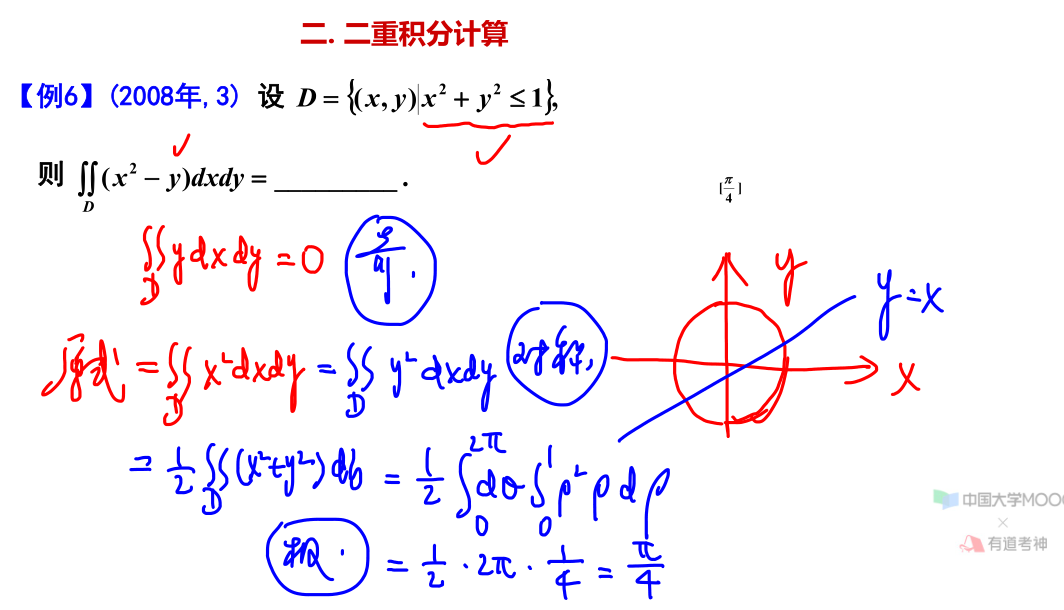 二. 二重积分计算
【例6】(2008年,3) 设 D = {(x, y)|x² + y² ≤ 1},
则 ∬_D (x² − y)dxdy = _________ .
[π/4]
∬_D y dx dy = 0
y
y=x
原式 = ∬_D x² dxdy = ∬_D y² dxdy 对称,
x
= 1/2 ∬_D (x²+y²) dσ = 1/2 ∫_0^{2π} dθ ∫_0^1 ρ² ρ dρ
极.
= 1/2 · 2π · 1/4 = π/4
中国大学MOOC
×
有道考神